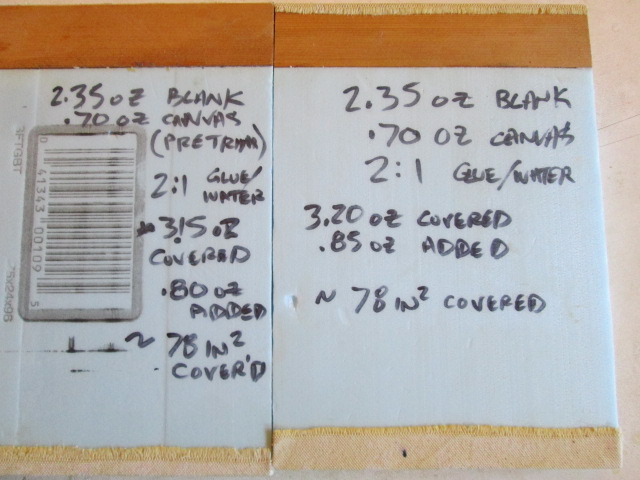 2.35 OZ BLANK
.70 OZ CANVAS
(PRETRIM)
2:1 GLUE/
WATER
3.15 OZ
COVERED
.80 OZ
ADDED
~ 78 IN²
COVER'D
0 41343 00109 5
2.35 OZ BLANK
.70 OZ CANVAS
2:1 GLUE/WATER
3.20 OZ COVERED
.85 OZ ADDED
~ 78 IN² COVERED